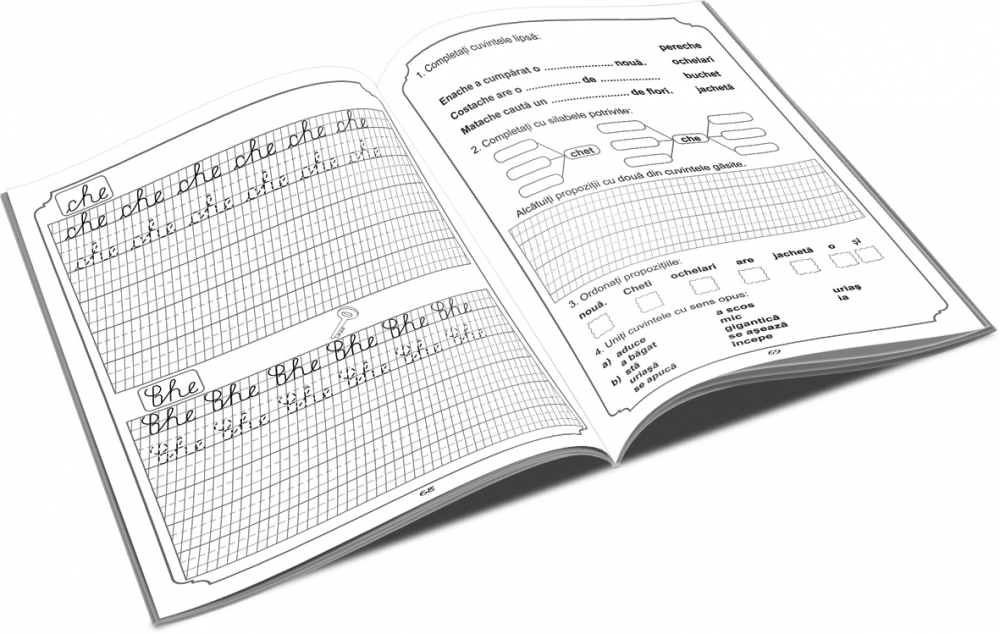 che
che che che che che che
che che che che che che
Che
Che Che Che Che Che Che
Che Che Che Che Che Che
68
1. Completaţi cuvintele lipsă:
Enache a cumpărat o .................... nouă. pereche
Costache are o ................ de ................. ochelari
Matache caută un ...................... de flori. buchet
jachetă
2. Completaţi cu silabele potrivite:
chet che
Alcătuiţi propoziţii cu două din cuvintele găsite.
3. Ordonaţi propoziţiile:
nouă. Cheti ochelari are jachetă o şi
4. Uniţi cuvintele cu sens opus:
a) aduce a scos uriaş
a băgat mic ia
b) stă gigantică
uriaşă se aşează
se apucă începe
69